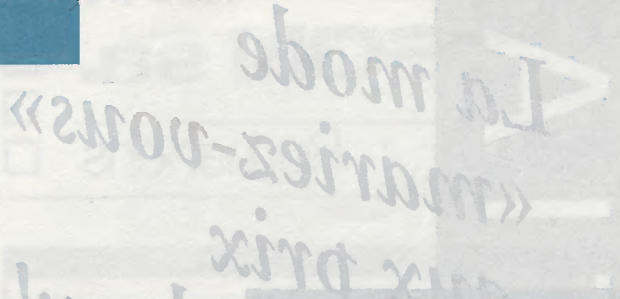 La mode
«mariez-vous»
aux prix